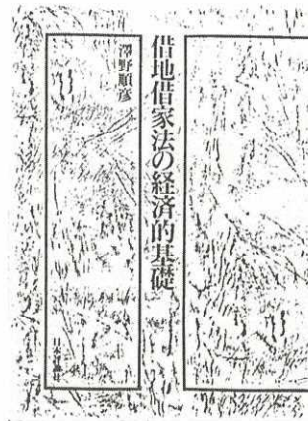 借地借家法の経済的基礎
澤野順彦
日本評論社